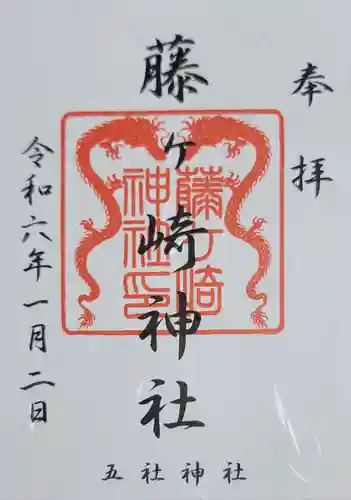 奉拝
藤ヶ崎神社
藤ヶ崎
神社印
令和六年一月二日
五社神社